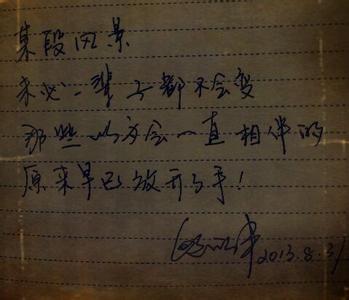 某段风景
未必一辈子都不会变
那些以为会一直相伴的
原来早已放开了手!
2013.8.31